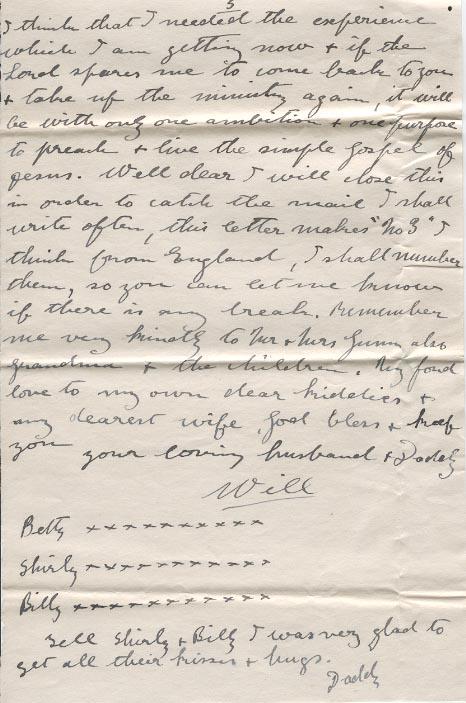 5
I think that I needed the experience
which I am getting now + if the
Lord spares me to come back to you
+ take up the ministry again, it will
be with only one ambition + one purpose
to preach + live the simple gospel of
Jesus. Well dear I will close this
in order to catch the mail I shall
write often, this letter makes "No 3" I
think from England, I shall number
them, so you can let me know
if there is any break. Remember
me very kindly to Mr + Mrs Gunn also
grandma + the children. My fond
love to my own dear kiddies +
my dearest wife, God bless + keep
you your loving husband + Daddy
Will
Betty x x x x x x x x x x
Shirly x x x x x x x x x x
Billy x x x x x x x x x x x
Tell Shirly + Billy I was very glad to
get all their kisses + hugs.
Daddy